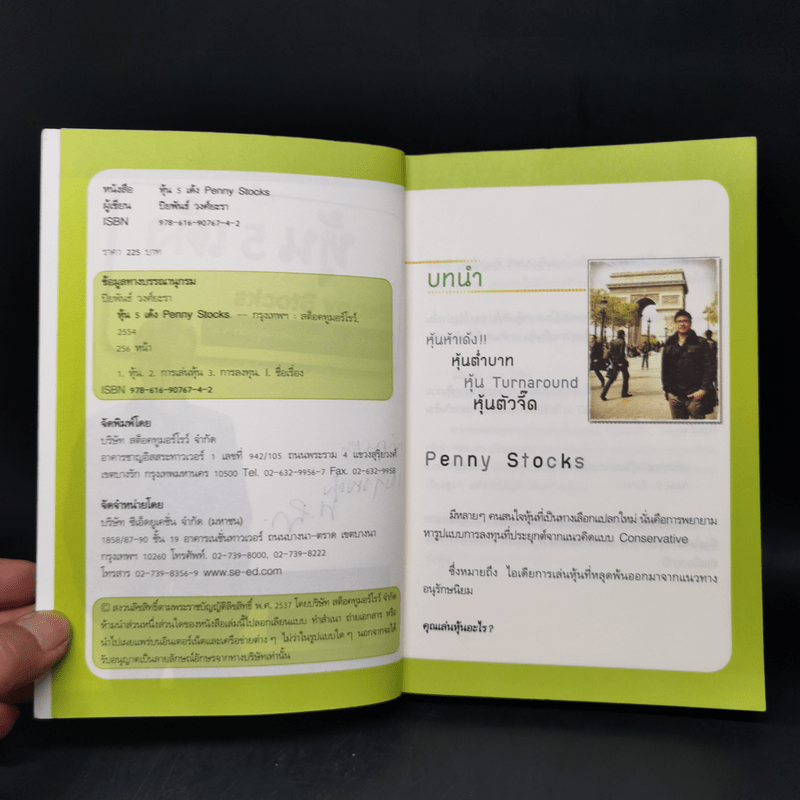 หนังสือ หุ้น 5 เด้ง Penny Stocks
ผู้เขียน ปิยพันธ์ วงศ์ยะรา
ISBN 978-616-90767-4-2
ราคา 225 บาท
ข้อมูลทางบรรณานุกรม
ปิยพันธ์ วงศ์ยะรา
หุ้น 5 เด้ง Penny Stocks. -- กรุงเทพฯ : สต็อคทูมอร์โรว์,
2554
256 หน้า
1. หุ้น. 2. การเล่นหุ้น 3. การลงทุน. I. ชื่อเรื่อง
ISBN 978-616-90767-4-2
จัดพิมพ์โดย
บริษัท สต็อคทูมอร์โรว์ จำกัด
อาคารชาญอิสสระทาวเวอร์ 1 เลขที่ 942/105 ถนนพระราม 4 แขวงสุริยวงศ์
เขตบางรัก กรุงเทพมหานคร 10500 Tel. 02-632-9956-7 Fax. 02-632-9958
จัดจำหน่ายโดย
บริษัท ซีเอ็ดยูเคชั่น จำกัด (มหาชน)
1858/87-90 ชั้น 19 อาคารเนชั่นทาวเวอร์ ถนนบางนา-ตราด เขตบางนา
กรุงเทพฯ 10260 โทรศัพท์. 02-739-8000, 02-739-8222
โทรสาร 02-739-8356-9 www.se-ed.com
© สงวนลิขสิทธิ์ตามพระราชบัญญัติลิขสิทธิ์ พ.ศ. 2537 โดยบริษัท สต็อคทูมอร์โรว์ จำกัด
ห้ามนำส่วนหนึ่งส่วนใดของหนังสือเล่มนี้ไปลอกเลียนแบบ ทำสำเนา ถ่ายเอกสาร หรือ
นำไปเผยแพร่บนอินเตอร์เน็ตและเครือข่ายต่าง ๆ ไม่ว่าในรูปแบบใด ๆ นอกจากจะได้
รับอนุญาตเป็นลายลักษณ์อักษรจากทางบริษัทเท่านั้น
บทนำ
หุ้นห้าเด้ง!!
หุ้นต่ำบาท
หุ้น Turnaround
หุ้นตัวจี๊ด
Penny Stocks
มีหลายๆ คนสนใจหุ้นที่เป็นทางเลือกแปลกใหม่ นั่นคือการพยายาม
หารูปแบบการลงทุนที่ประยุกต์จากแนวคิดแบบ Conservative
ซึ่งหมายถึง ไอเดียการเล่นหุ้นที่หลุดพ้นออกมาจากแนวทาง
อนุรักษนิยม
คุณเล่นหุ้นอะไร?